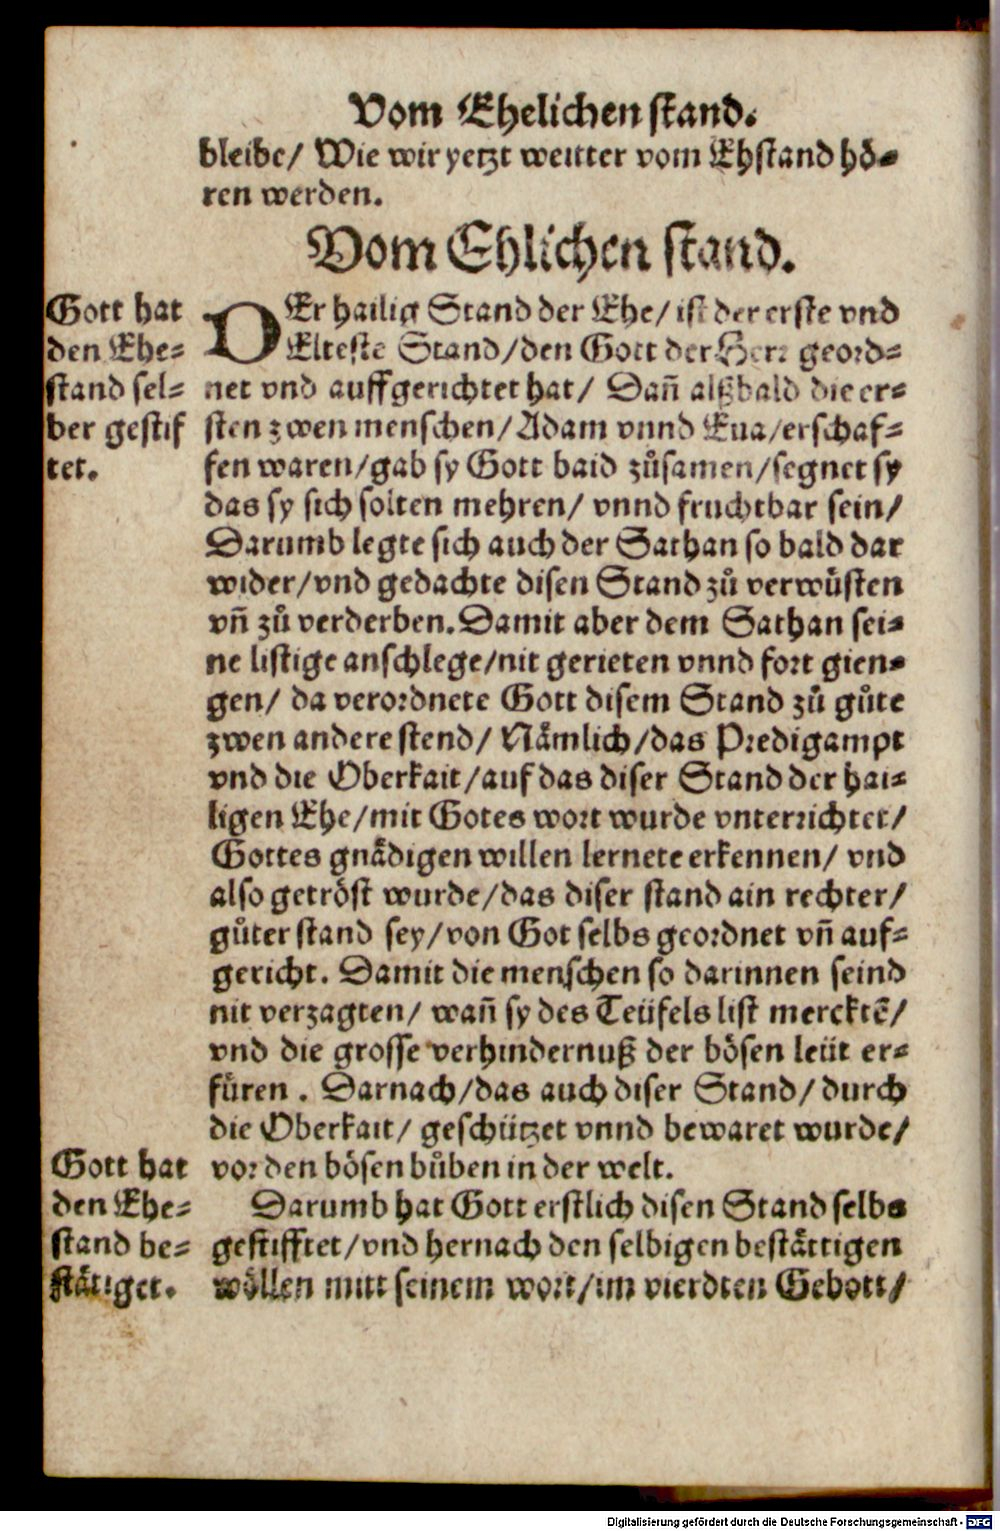 Vom Ehelichen stand.
bleibe/ Wie wir yetzt weitter vom Ehstand hö-
ren werden.
Vom Ehlichen stand.
Gott hat
den Ehe-
stand sel-
ber gestif
tet.
DEr hailig Stand der Ehe/ ist der erste vnd
Elteste Stand/den Gott der Herr geord-
net vnd auffgerichtet hat/ Dañ alßbald die er-
sten zwen menschen/Adam vnnd Eua/erschaf-
fen waren/gab sy Gott baid zůsamen/segnet sy
das sy sich solten mehren/ vnnd fruchtbar sein/
Darumb legte sich auch der Sathan so bald dar
wider/vnd gedachte disen Stand zů verwůsten
vñ zů verderben.Damit aber dem Sathan sei-
ne listige anschlege/nit gerieten vnnd fort gien-
gen/ da verordnete Gott disem Stand zů gůte
zwen andere stend/ Nämlich/das Predigampt
vnd die Oberkait/auf das diser Stand der hai-
ligen Ehe/mit Gotes wort wurde vnterrichtet/
Gottes gnädigen willen lernete erkennen/ vnd
also getröst wurde/das diser stand ain rechter/
gůter stand sey/von Got selbs geordnet vñ auf-
gericht. Damit die menschen so darinnen seind
nit verzagten/ wañ sy des Teüfels list mercktẽ/
vnd die grosse verhindernuß der bösen leüt er-
füren . Darnach/das auch diser Stand/ durch
die Oberkait/ geschützet vnnd bewaret wurde/
vor den bösen bůben in der welt.
Gott hat
den Ehe-
stand be-
stätiget.
Darumb hat Gott erstlich disen Stand selbs
gestifftet/vnd hernach den selbigen bestättigen
wöllen mitt seinem wort/im vierdten Gebott/
Digitalisierung gefördert durch die Deutsche Forschungsgemeinschaft - DFG